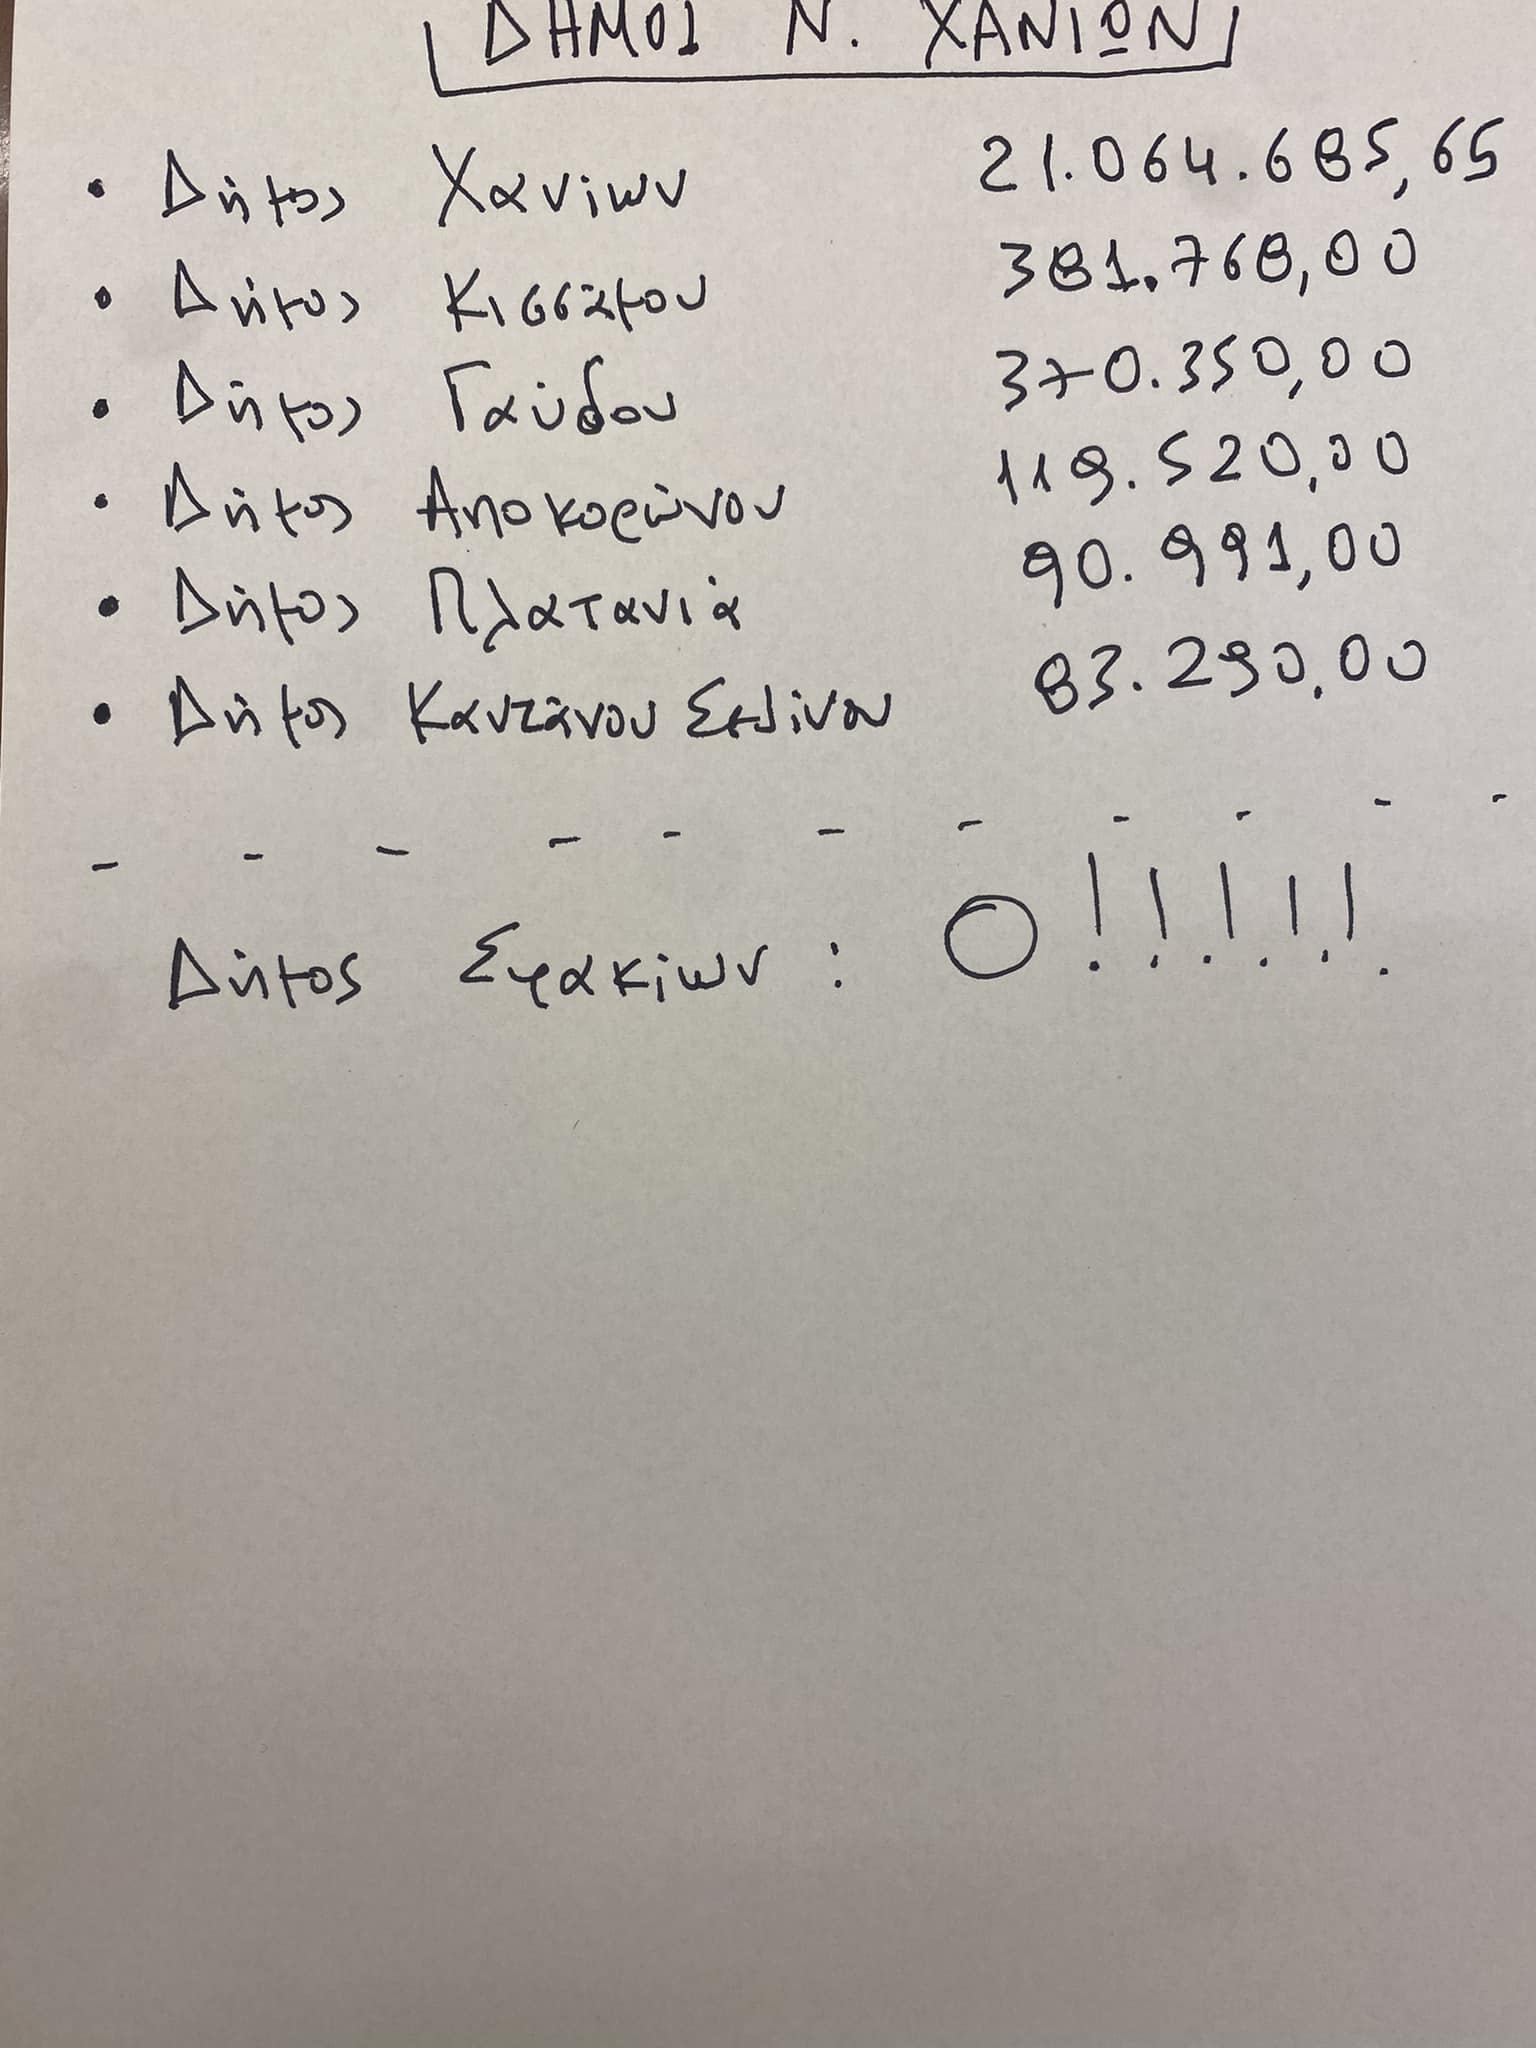 ΔΗΜΟΙ Ν. ΧΑΝΙΩΝ
• Δήμος Χανίων 21.064.685,65
• Δήμος Κισσάμου 381.768,00
• Δήμος Γαύδου 370.350,00
• Δήμος Αποκορώνου 119.520,00
• Δήμος Πλατανιά 90.991,00
• Δήμος Καντάνου Σελίνου 83.290,00
- - - - - - - - - - -
Δήμος Σφακίων : 0!!!!!.